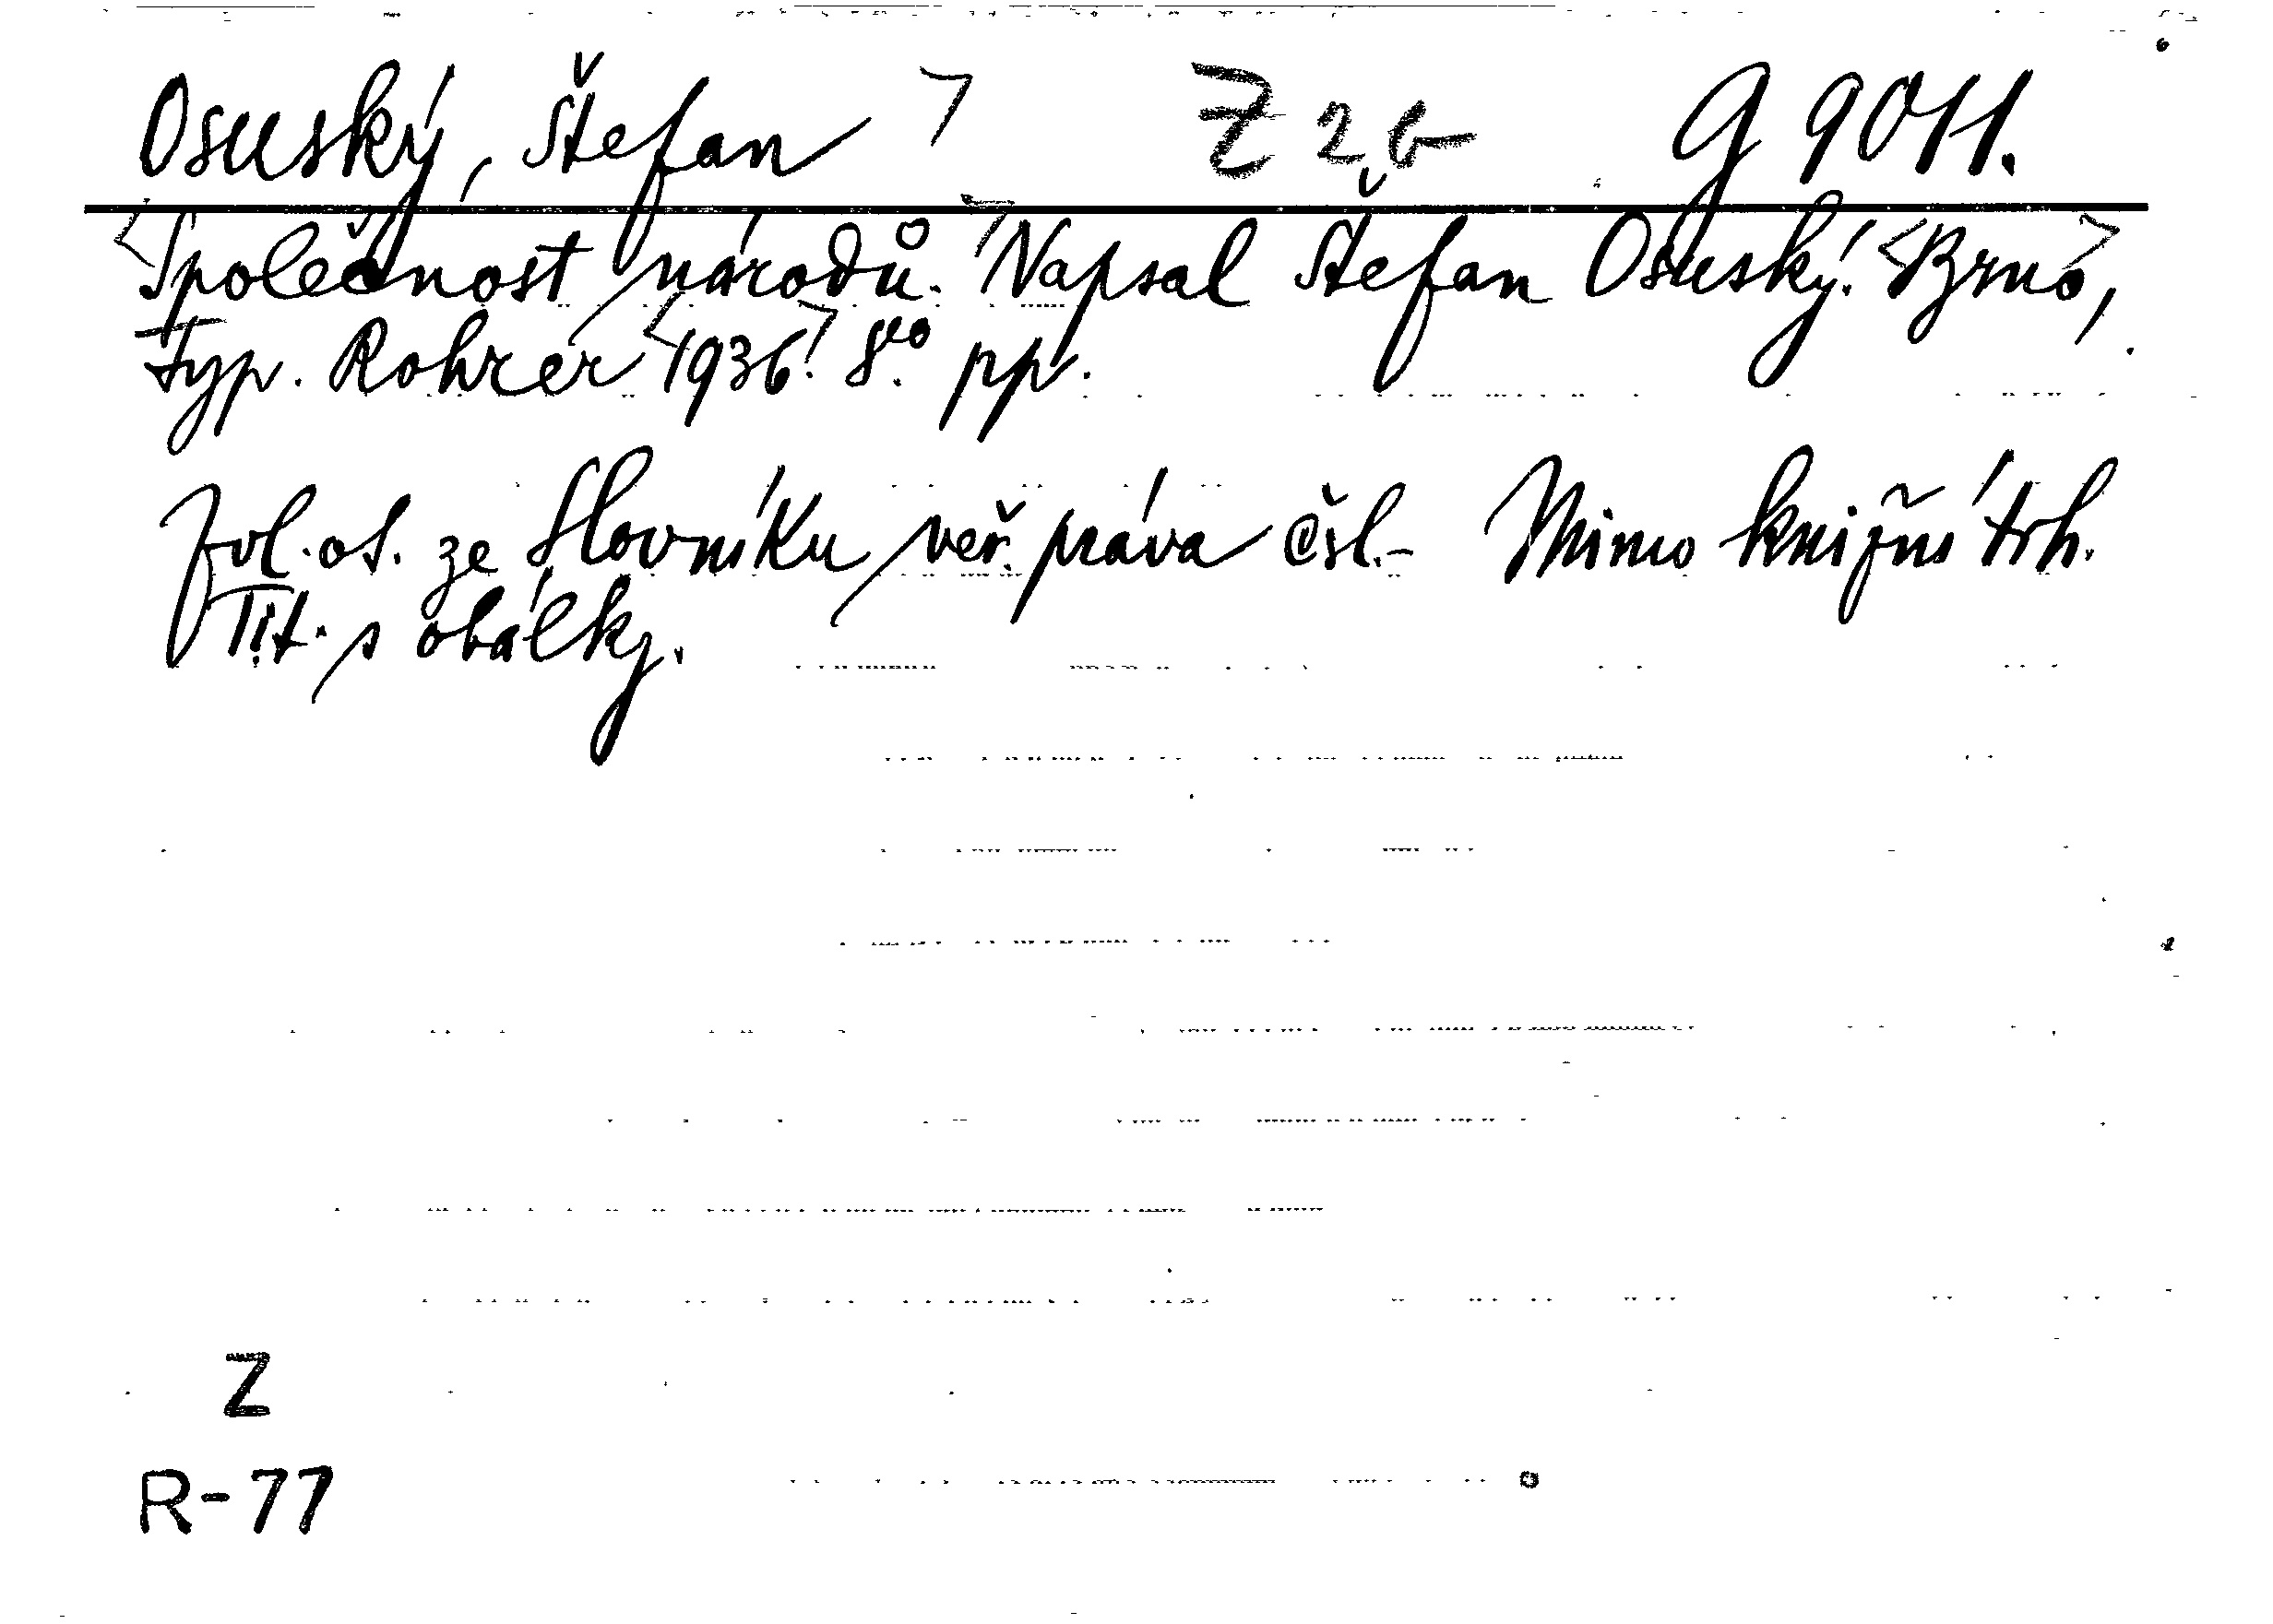 Osuský, Štefan > Z 2 b G 9011.
<Společnost národů.> Napsal Štefan Osuský. <Brno>,
Typ. Rohrer <1936.> 8.º pp.
Zvl. ot. ze Slovníku veř. práva čsl.- Mimo knižní trh.
Tit. s obálky.
Z
R-77